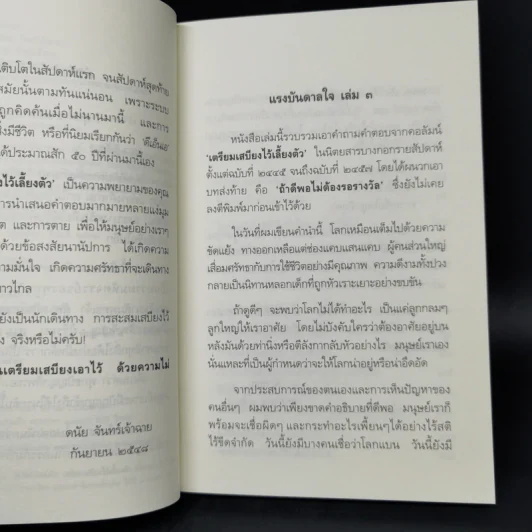 ติบโตในสัปดาห์แรก จนสัปดาห์สุดท้าย
สมัยนั้นตามทันแน่นอน เพราะระบบ
ถูกคิดค้นเมื่อไม่นานมานี้ และการ
งมีชีวิต หรือที่นิยมเรียกกันว่า 'ดีเอ็นเอ'
ได้ประมาณสัก ๕๐ ปีที่ผ่านมานี้เอง
งไว้เลี้ยงตัว' เป็นความพยายามของคุณ
การนำเสนอคำตอบมากมายหลายแง่มุม
ต และการตาย เพื่อให้มนุษย์อย่างเราๆ
ด้วยข้อสงสัยนานัปการ ได้เกิดความ
ามมั่นใจ เกิดความศรัทธาที่จะเดินทาง
าวไกล
ยังเป็นนักเดินทาง การสะสมเสบียงไว้
จริงหรือไม่ครับ!
นเตรียมเสบียงเอาไว้ ด้วยความไม่
ดนัย จันทร์เจ้าฉาย
กันยายน ๒๕๔๘
แรงบันดาลใจ เล่ม ๓
หนังสือเล่มนี้รวบรวมเอาคำถามคำตอบจากคอลัมน์
'เตรียมเสบียงไว้เลี้ยงตัว' ในนิตยสารบางกอกรายสัปดาห์
ตั้งแต่ฉบับที่ ๒๔๔๕ จนถึงฉบับที่ ๒๔๕๗ โดยได้ผนวกเอา
บทส่งท้าย คือ 'ถ้าดีพอไม่ต้องรอรางวัล' ซึ่งยังไม่เคย
ลงตีพิมพ์มาก่อนเข้าไว้ด้วย
ในวันที่ผมเขียนคำนำนี้ โลกเหมือนเต็มไปด้วยความ
ขัดแย้ง ทางออกเหลือแต่ช่องแคบแสนแคบ ผู้คนส่วนใหญ่
เสื่อมศรัทธากับการใช้ชีวิตอย่างมีคุณภาพ ความดีงามทั้งปวง
กลายเป็นนิทานหลอกเด็กที่ถูกหัวเราะเยาะอย่างขบขัน
ถ้าดูดีๆ จะพบว่าโลกไม่ได้ทำอะไร เป็นแค่ลูกกลมๆ
ลูกใหญ่ให้เราอาศัย โดยไม่บังคับใครว่าต้องอาศัยอยู่บน
หลังมันด้วยท่านิ่งหรือตีลังกากลับหัวอย่างไร มนุษย์เราเอง
นั่นแหละที่เป็นผู้กำหนดว่าจะให้โลกน่าอยู่หรือน่าอึดอัด
จากประสบการณ์ของตนเองและการเห็นปัญหาของ
คนอื่นๆ ผมพบว่าเพียงขาดคำอธิบายที่ดีพอ มนุษย์เราก็
พร้อมจะเชื่อผิดๆ และกระทำอะไรเพี้ยนๆได้อย่างไร้สติ
ไร้ขีดจำกัด วันนี้ยังมีบางคนเชื่อว่าโลกแบน วันนี้ยังมี